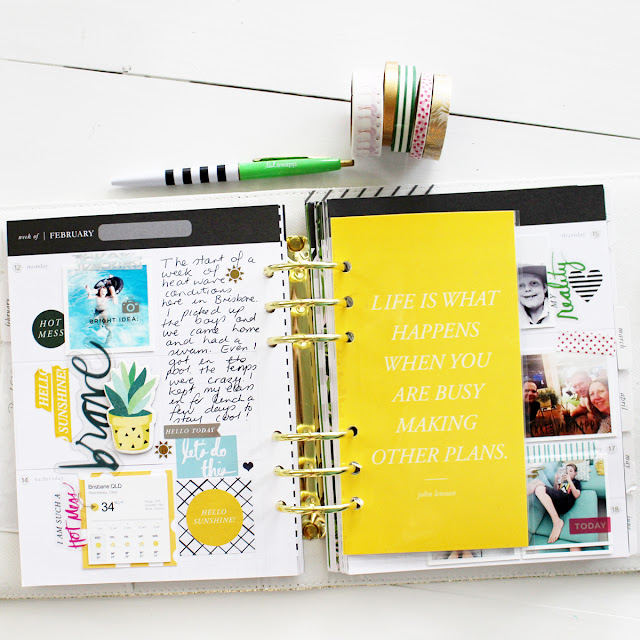 week of | FEBRUARY
12 monday
HOT
MESS
BRIGHT IDEA!
The start of a
week of
heatwave
conditions
here in Brisbane.
I picked up
the boys and
we came home
and had a
swim. Even I
got in the
pool the temps
were crazy
kept my class
in for lunch a
few days to
stay cool!
HELLO
SUNSHINE!
brave
HELLO TODAY
let's do
this
14 wednesday
I AM SUCH A
HOT MESS
Brisbane QLD
34
HELLO
SUNSHINE!
LIFE IS WHAT
HAPPENS
WHEN YOU
ARE BUSY
MAKING
OTHER PLANS.
john lennon
15
MY
Reality
TODAY
18